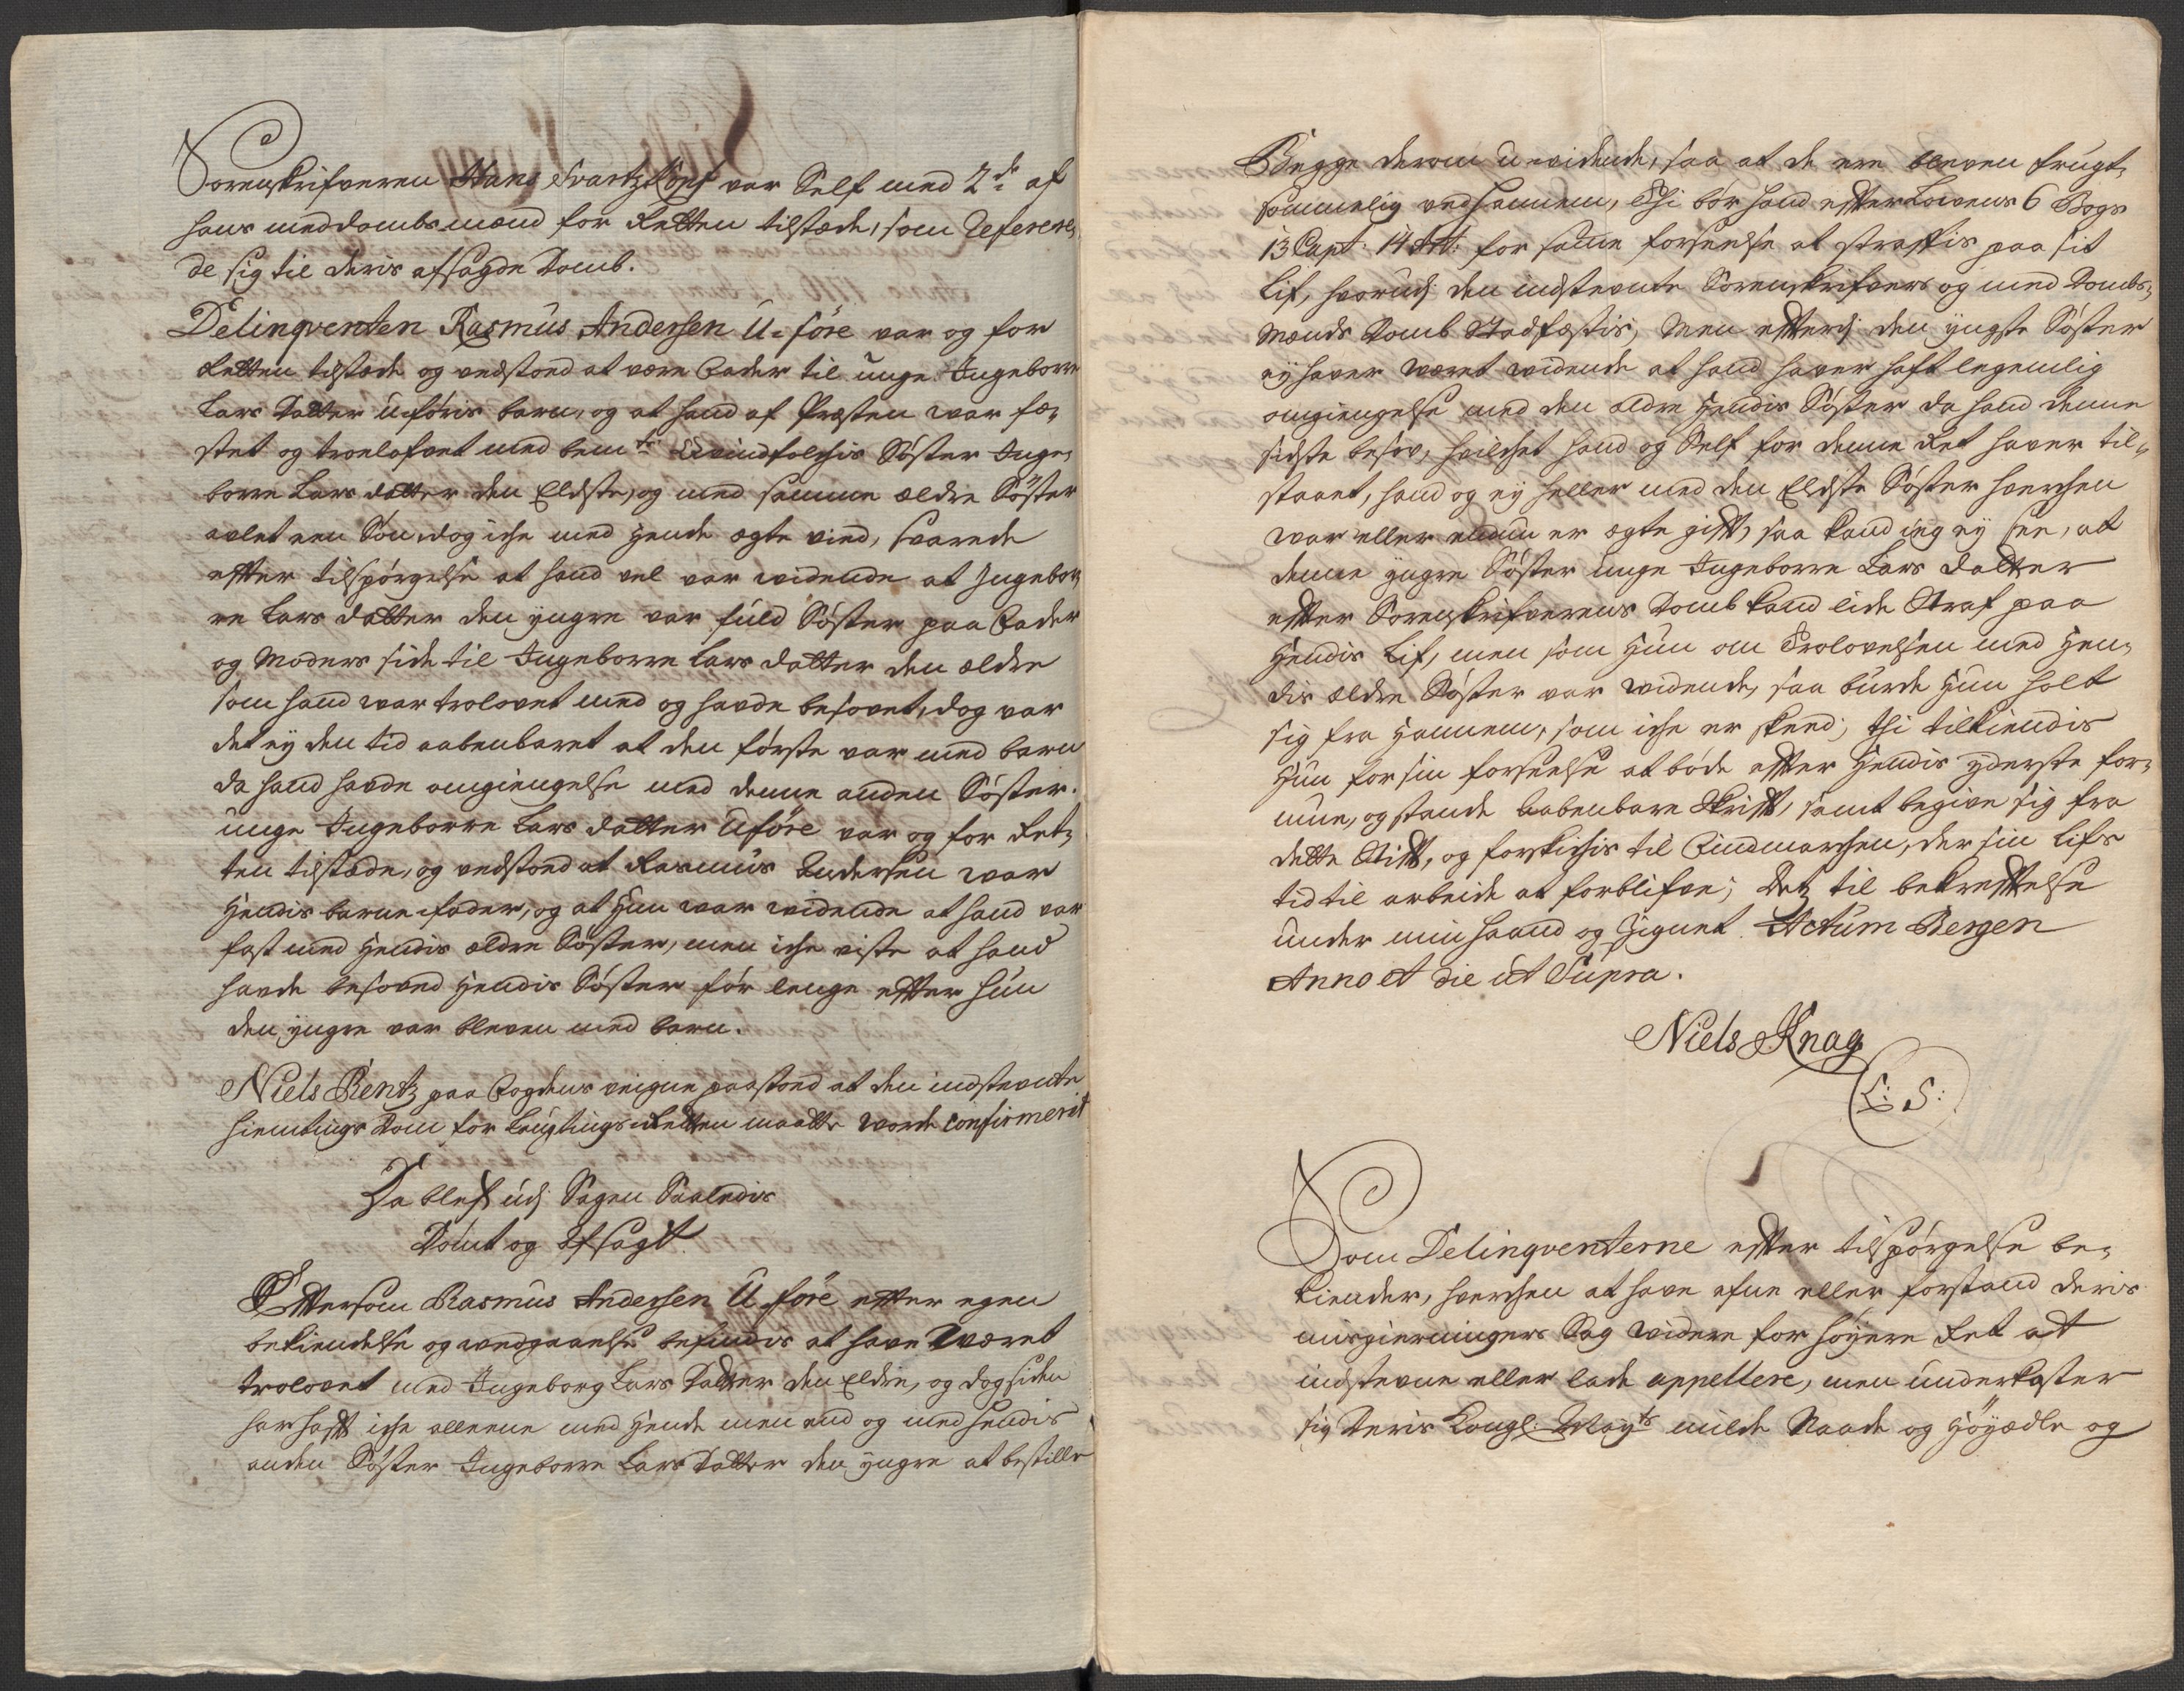 Sorenskrifveren Hans Svartzkopf var Self med 2de af
hans meddombsmænd for Retten tilstæde, som Referere,
de sig til deris afsagde Domb.
Delinqventen Rasmus Andersen U-føre var og for
Retten tilstæde og vedstoed at være Fader til unge Ingeborre
Lars Datter Uføris barn, og at hand af Præsten war fæ,
stet og troelofvet med bemte Qvindfolchis Søster Inge,
borre Lars datter den Eldste, og med samme ældre Søster
avlet een Søn, dog iche med hende ægte vied, svarede
effter tilspørgelse at hand vel var widende at Ingebor,
re Lars datter den yngre var fuld Søster paa Fader
og Moders side til Ingeborre Lars datter den ældre
som hand war trolovet med og havde besovet, dog var
det ey den tid aabenbaret at den første var med barn
da hand havde omgiengelse med denne anden Søster.
unge Ingeborre Lars datter Uføre var og for Ret,
ten tilstæde, og vedstoed at Rasmus Andersen war
hendis barne fader, og at hun war widende at hand var
fæst med hendis ældre Søster, men iche viste at hand
havde besoved hendis Søster før lenge effter hun
den yngre var bleven med barn.
Niels Bentz paa Fogdens veigne paastoed at den indstevnte
hiemtings Dom for Laugtings Retten maatte worde confirmerit
Da blef udj Sagen Saaledis
Dømt og Afsagt.
Efftersom Rasmus Andersen U-føre effter egen
bekiendelse og wedgaaelse befindis at have Wæret
trolovet med Ingeborg Lars Datter den Eldre, og dog siden
har hafft iche alleene med hende men end og med hendis
anden Søster Ingeborre Lars Datter den yngre at bestille
Begge derom u-vidende, saa at de ere bleven frugt,
sommelig ved hannem, Thi bør hand effter Lovens 6 Bogs
13 Capt: 14 Art: for samme forseelse at straffis paa sit
Lif, hvorudj den indstevnte Sorenskrifvers og med Dombs,
Mænds Domb Stadfæstis, Men efftersom den yngste Søster
ey haver wæret widende at hand haver haft legemlig
omgiengelse med den ældre hendis Søster da hand denne
sidste besov, hvilchet hand og Self for denne Ret haver til,
staaet, hand og ey heller med den Eldste Søster hverchen
war eller endnu er ægte gifft, saa kand ieg ey see, at
denne yngre Søster unge Ingeborre Lars datter
effter Sorenskrifverens Domb kand lide Straf paa
Hendis Lif, men som hun om Trolovelsen med hen,
dis ældre Søster var widende, saa burde hun holt
sig fra hannem, som iche er skeed; thi tilkiendis
hun for sin forseelse at bøde effter hendis yderste for,
mue, og stande aabenbare Skrifft, samt begive sig fra
dette Stifft, og forskichis til Findmarchen, der sin Lifs
tid til arbeide at forblifve; Detz til bekrefftelse
under min haand og Zignet Actum Bergen
Anno et die ut Supra.
Niels Knag
L: S:
Som Delinqventerne effter tilspørgelse be,
kiender, hverchen at have efne eller forstand deris
misgierningers Sag widere for høyere Ret at
indstevne eller lade appellere, men underkaster
sig Deris Kongl: Mayts milde Naade og Høyædle og